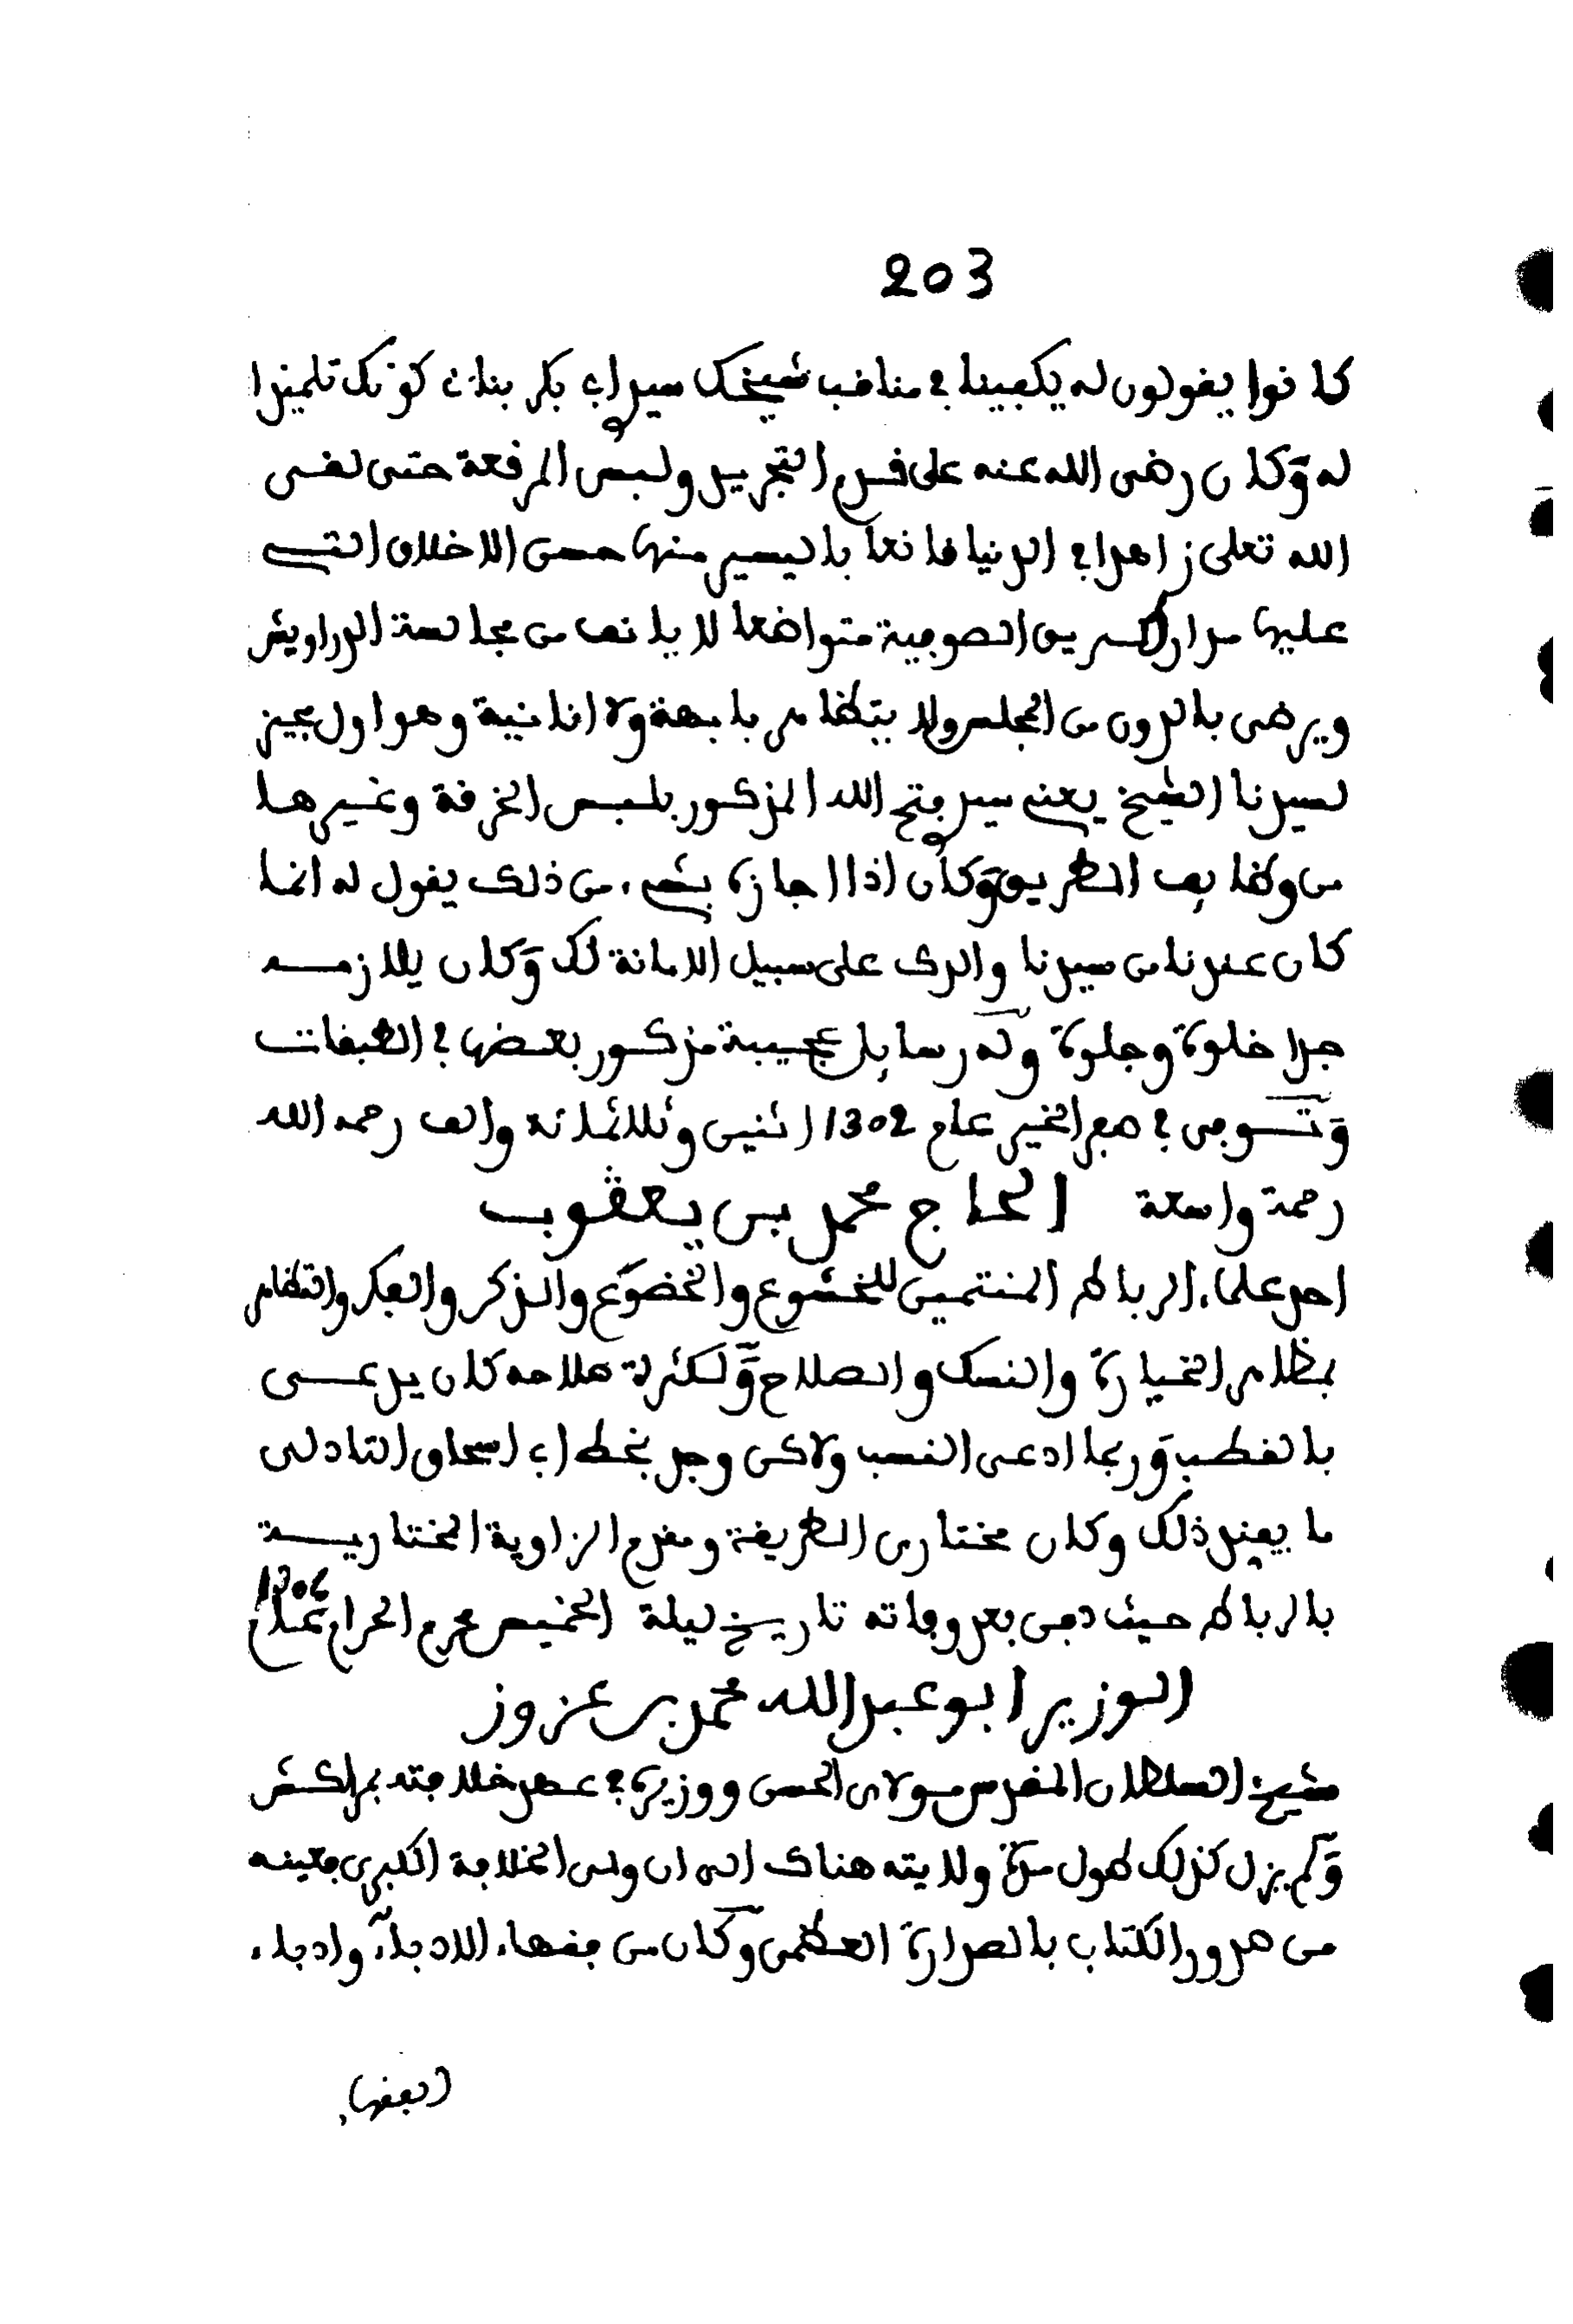 203
كانوا يقولون له يكفينا في مناقب شيخك سيد ابي بكر بناني كونك تلميذا
له وكان رضي الله عنه على قدم التجريد ولبس المرقعة حتى لقي
الله تعلى زاهدا في الدنيا قانعا باليسير منها حسن الاخلاق التي
عليها مدار طريق الصوفية متواضعا لا يانف من مجالسة الدراويش
ويرضى بالدون من المجلس ولا يتظاهر بابهة ولا انانية وهو اول مجيز
لسيدنا الشيخ يعني سيد فتح الله المذكور بلبس الخرقة وغيرها
من وظايف الطريق وكان اذا اجازه بشيء من ذلك يقول له انما
كان عندنا من سيدنا والدك على سبيل الامانة لك وكان يلازمه
جدا خلوة وجلوة وله رسايل عجيبة مذكور بعضها في الطبقات
وتوفي في صفر الخير عام 1302 اثنين وثلاثمائة والف رحمه الله
رحمة واسعة الحاج محمد بن يعقوب
احد علماء الرباط المنتمين للخشوع والخضوع والذكر والفكر والتظاهر
بمظاهر الخيارة والنسك والصلاح ولكثرة صلاحه كان يدعى
بالقطب وربما ادعى النسب ولاكن وجد بخط ابي اسحاق التادلي
ما يفند ذلك وكان مختاري الطريقة ومقدم الزاوية المختارية
بالرباط حيث دفن بعد وفاته تاريخ ليلة الخميس محرم الحرام عام
الوزير ابو عبد الله محمد بن عزوز
شيخ السلطان المقدس مولاي الحسن ووزيره في عصر خلافته بمراكش
ولم يزل كذلك طول مدة ولايته هناك الى ان ولي الخلافة الكبرى فعينه
من صدور الكتاب بالصدارة العظمى وكان من فقهاء الادباء وادباء
(الفقهاء)